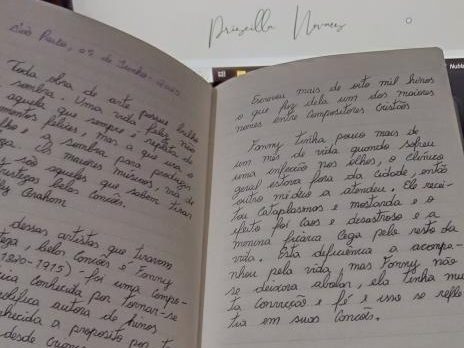 Priscilla Novaes
São Paulo, 09 de Junho
Toda obra de arte possui brilho
e sombra. Uma vida feliz não
é aquela que sempre é repleta de
momentos felizes, mas a que usa o
brilho e a sombra para produzir
Os maiores músicos
são aqueles que sabem tirar
tristezas belas canções.
dessas artistas que tiraram
belas canções é Fanny
(1820-1915) - foi uma compo-
conhecida por tornar-se
prolífica autora de hinos
conhecida a proposito por
desde
Escreveu mais de oito mil hinos
o que fez dela um dos maiores
nomes entre compositores Cristãos
Fanny tinha pouco mais de
um mês de vida quando sofreu
uma infecção nos olhos, o clínico
geral estava fora da cidade, então
outro médico a atendeu. Ele recei-
tou cataplasmas e mostarda e o
efeito foi caos e desastroso e a
menina ficaria cega pelo resto da
vida. Esta deficiência a acompa-
nhou pela vida, mas Fanny não
se deixara abalar, ela tinha mui-
ta convicção e fé e isso se refle-
tia em suas canções.